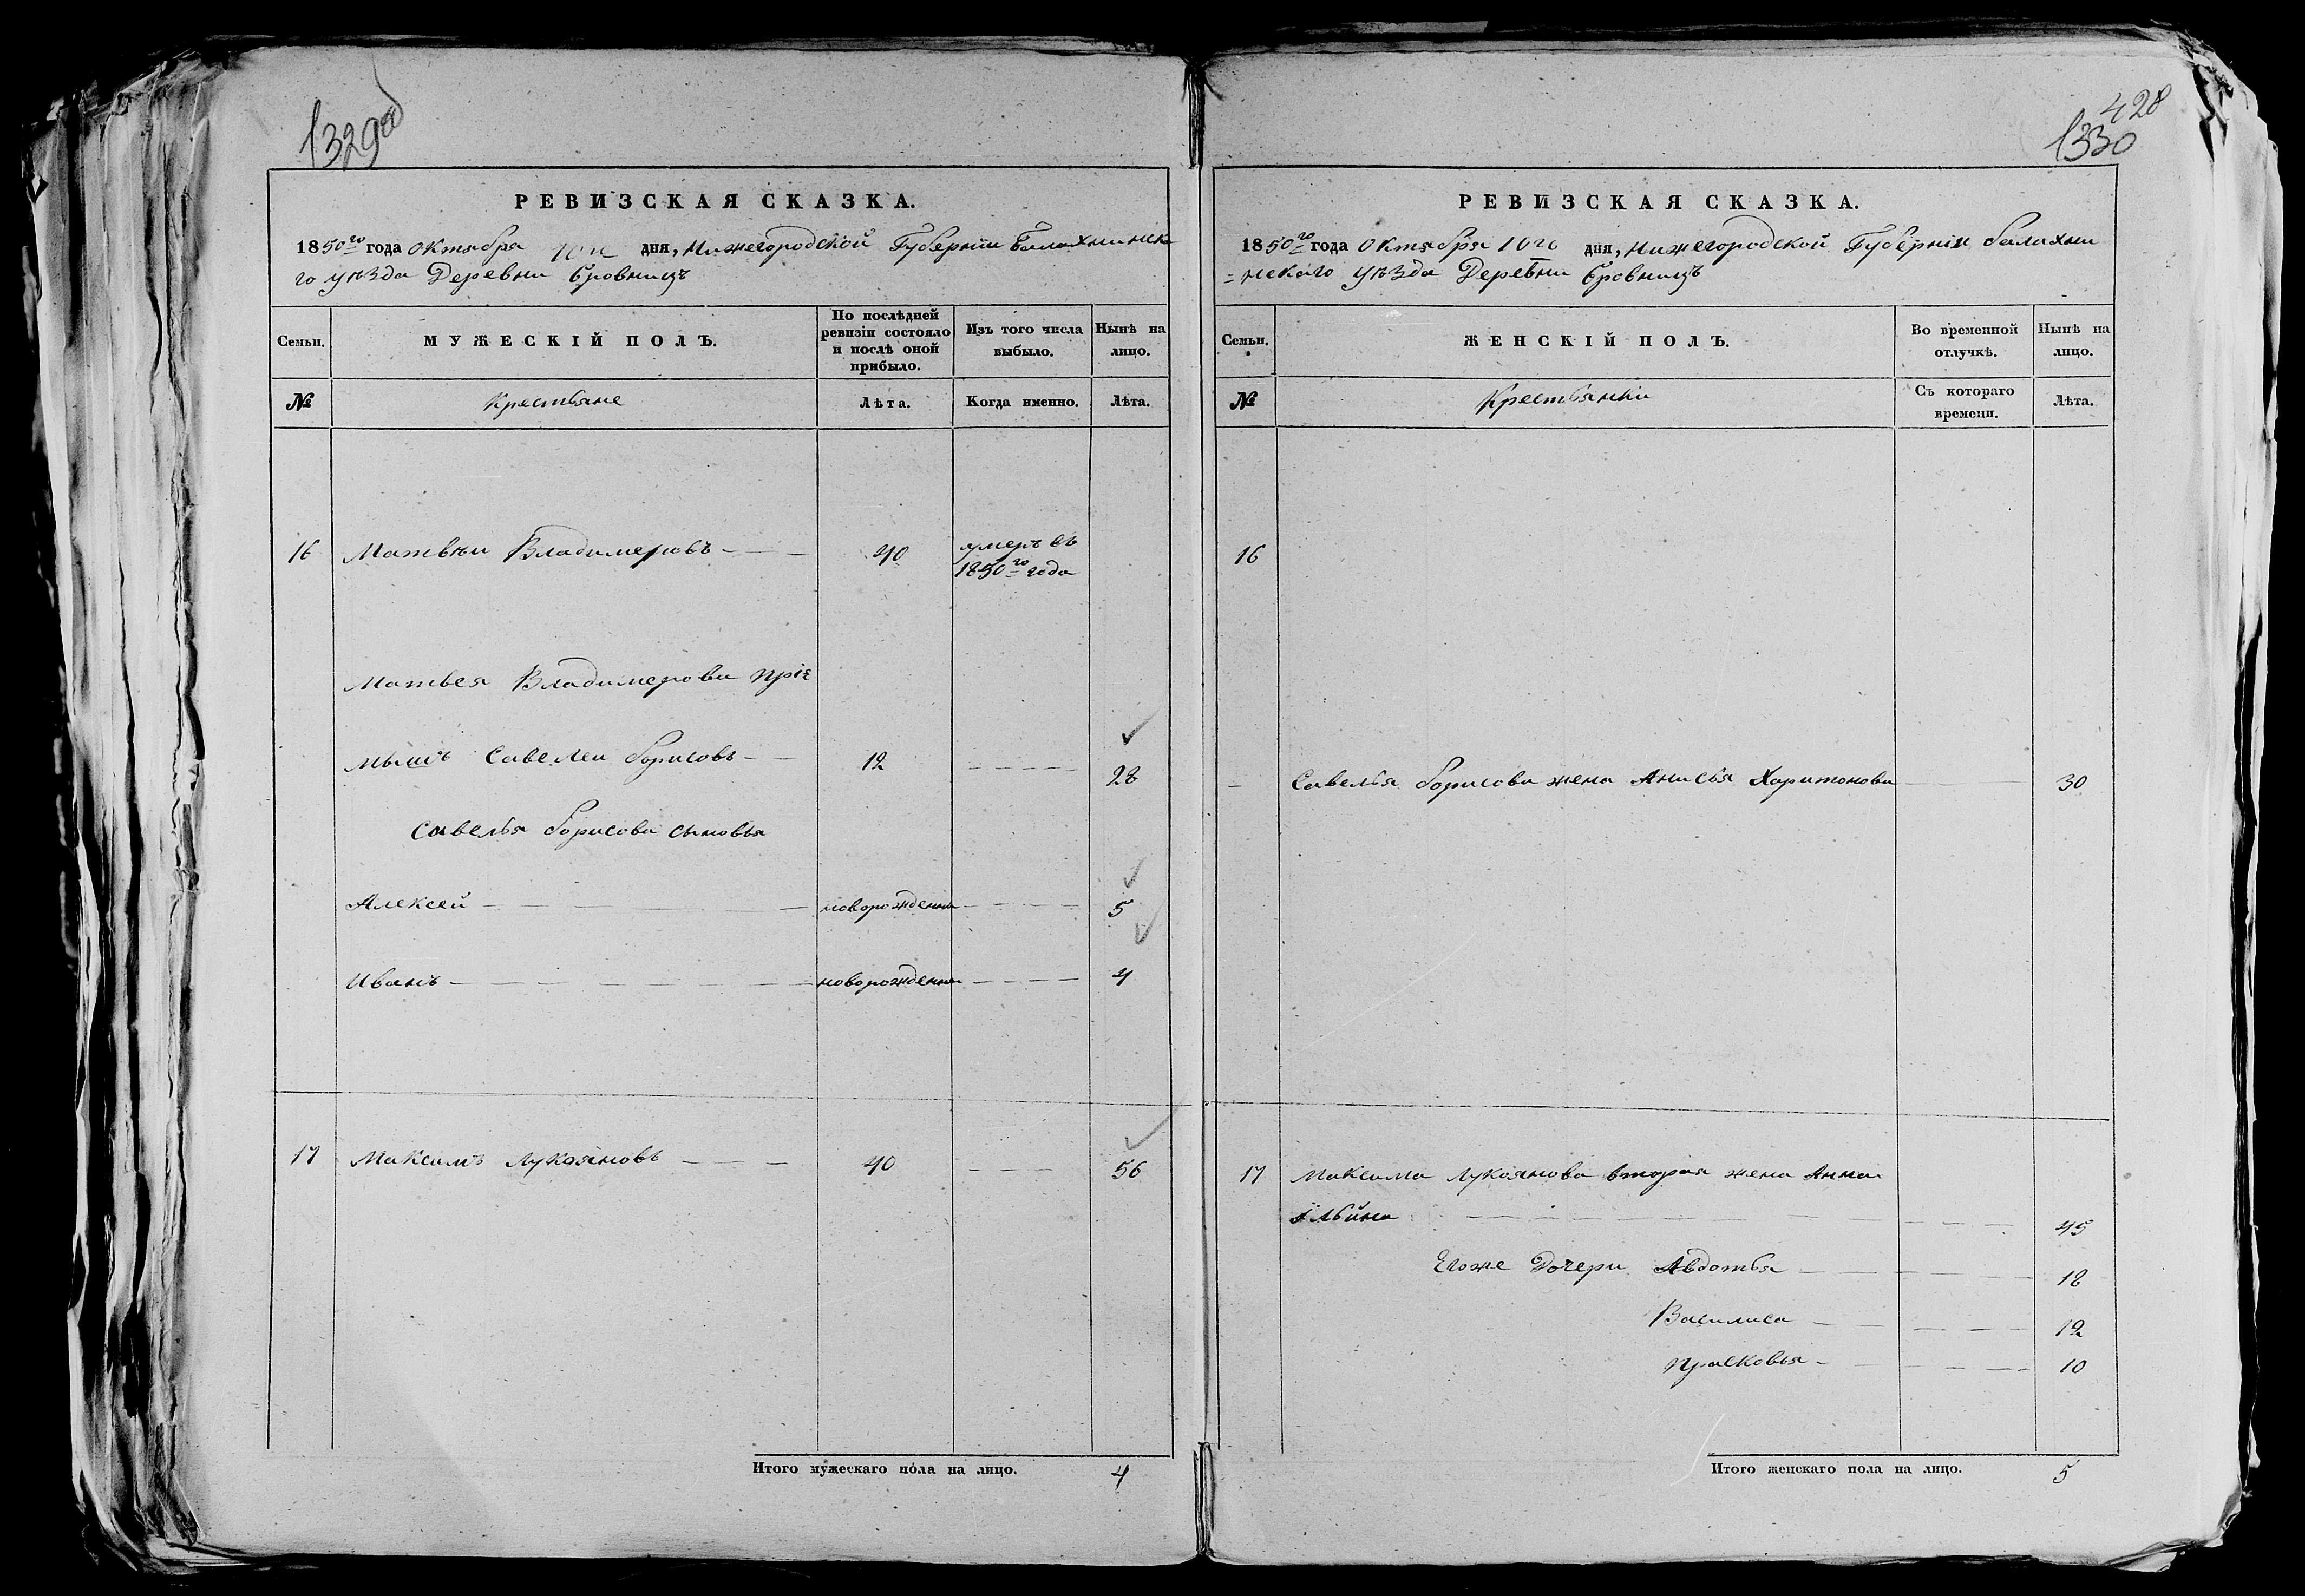 1329об
РЕВИЗСКАЯ СКАЗКА.
1850го года Октября 10го дня, Нижегородской Губерніи Балахнинска
го уѣзда Деревни Бровницъ
Семьи.
МУЖЕСКІЙ ПОЛЪ.
По послѣдней ревизіи состояло и послѣ оной прибыло.
Изъ того числа выбыло.
Нынѣ на лицо.
№
Крестьяне
Лѣта.
Когда именно.
Лѣта.
16 Матвѣи Владимеровъ 40 умеръ съ
1850го года
Матвея Владимерова пріе
мышъ Савелеи Борисовъ 12 28
Савелья Борисова сыновья
Алексей новорожденны 5
Иванъ новорожденны 4
17 Максимъ Лукояновъ 40 56
Итого мужескаго пола на лицо. 4
428
1330
РЕВИЗСКАЯ СКАЗКА.
1850го года Октября 10го дня, Нижегородской Губерніи Балахни
=нскаго уѣзда Деревни Бровницъ
Семьи.
ЖЕНСКІЙ ПОЛЪ.
Во временной отлучкѣ.
Нынѣ на лицо.
№
Крестьянки
Съ котораго времени.
Лѣта.
16
Савелья Борисова жена Анисья Харитонова 30
17 Максима Лукоянова вторая жена Анна
Ильйна 45
Егоже Дочери Авдотья 18
Василиса 12
Прасковья 10
Итого женскаго пола на лицо. 5